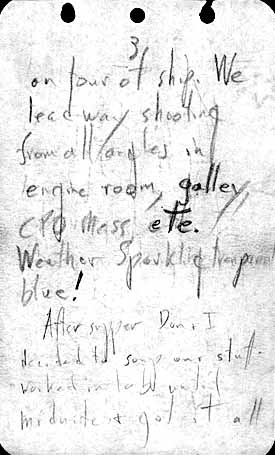 3,
on tour of ship. We
lead way shooting
from all angles in
engine room, galley,
CPO Mass, etc.
Weather Sparkling transparent
blue!
After supper Don & I
decided to soup our stuff.
worked in lab until
midnite & got it all